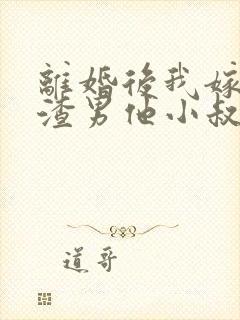 離婚後我嫁
渣男他小叔
道哥